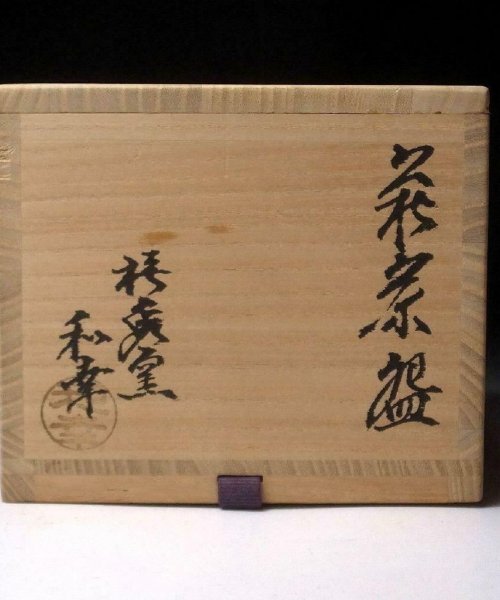 萩茶盌
椿秀窯
和幸